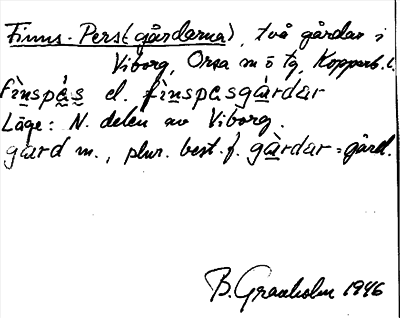 Finns-Pers(gårdarna), två gårdar i
Viborg, Orsa m o tg, Kopparb. l.
fìnspɛ́s el. fìnspɛsgárdar
Läge: N. delen av Viborg.
gard m., plur. best. f. gàrdar = gård.
B. Granholm 1946